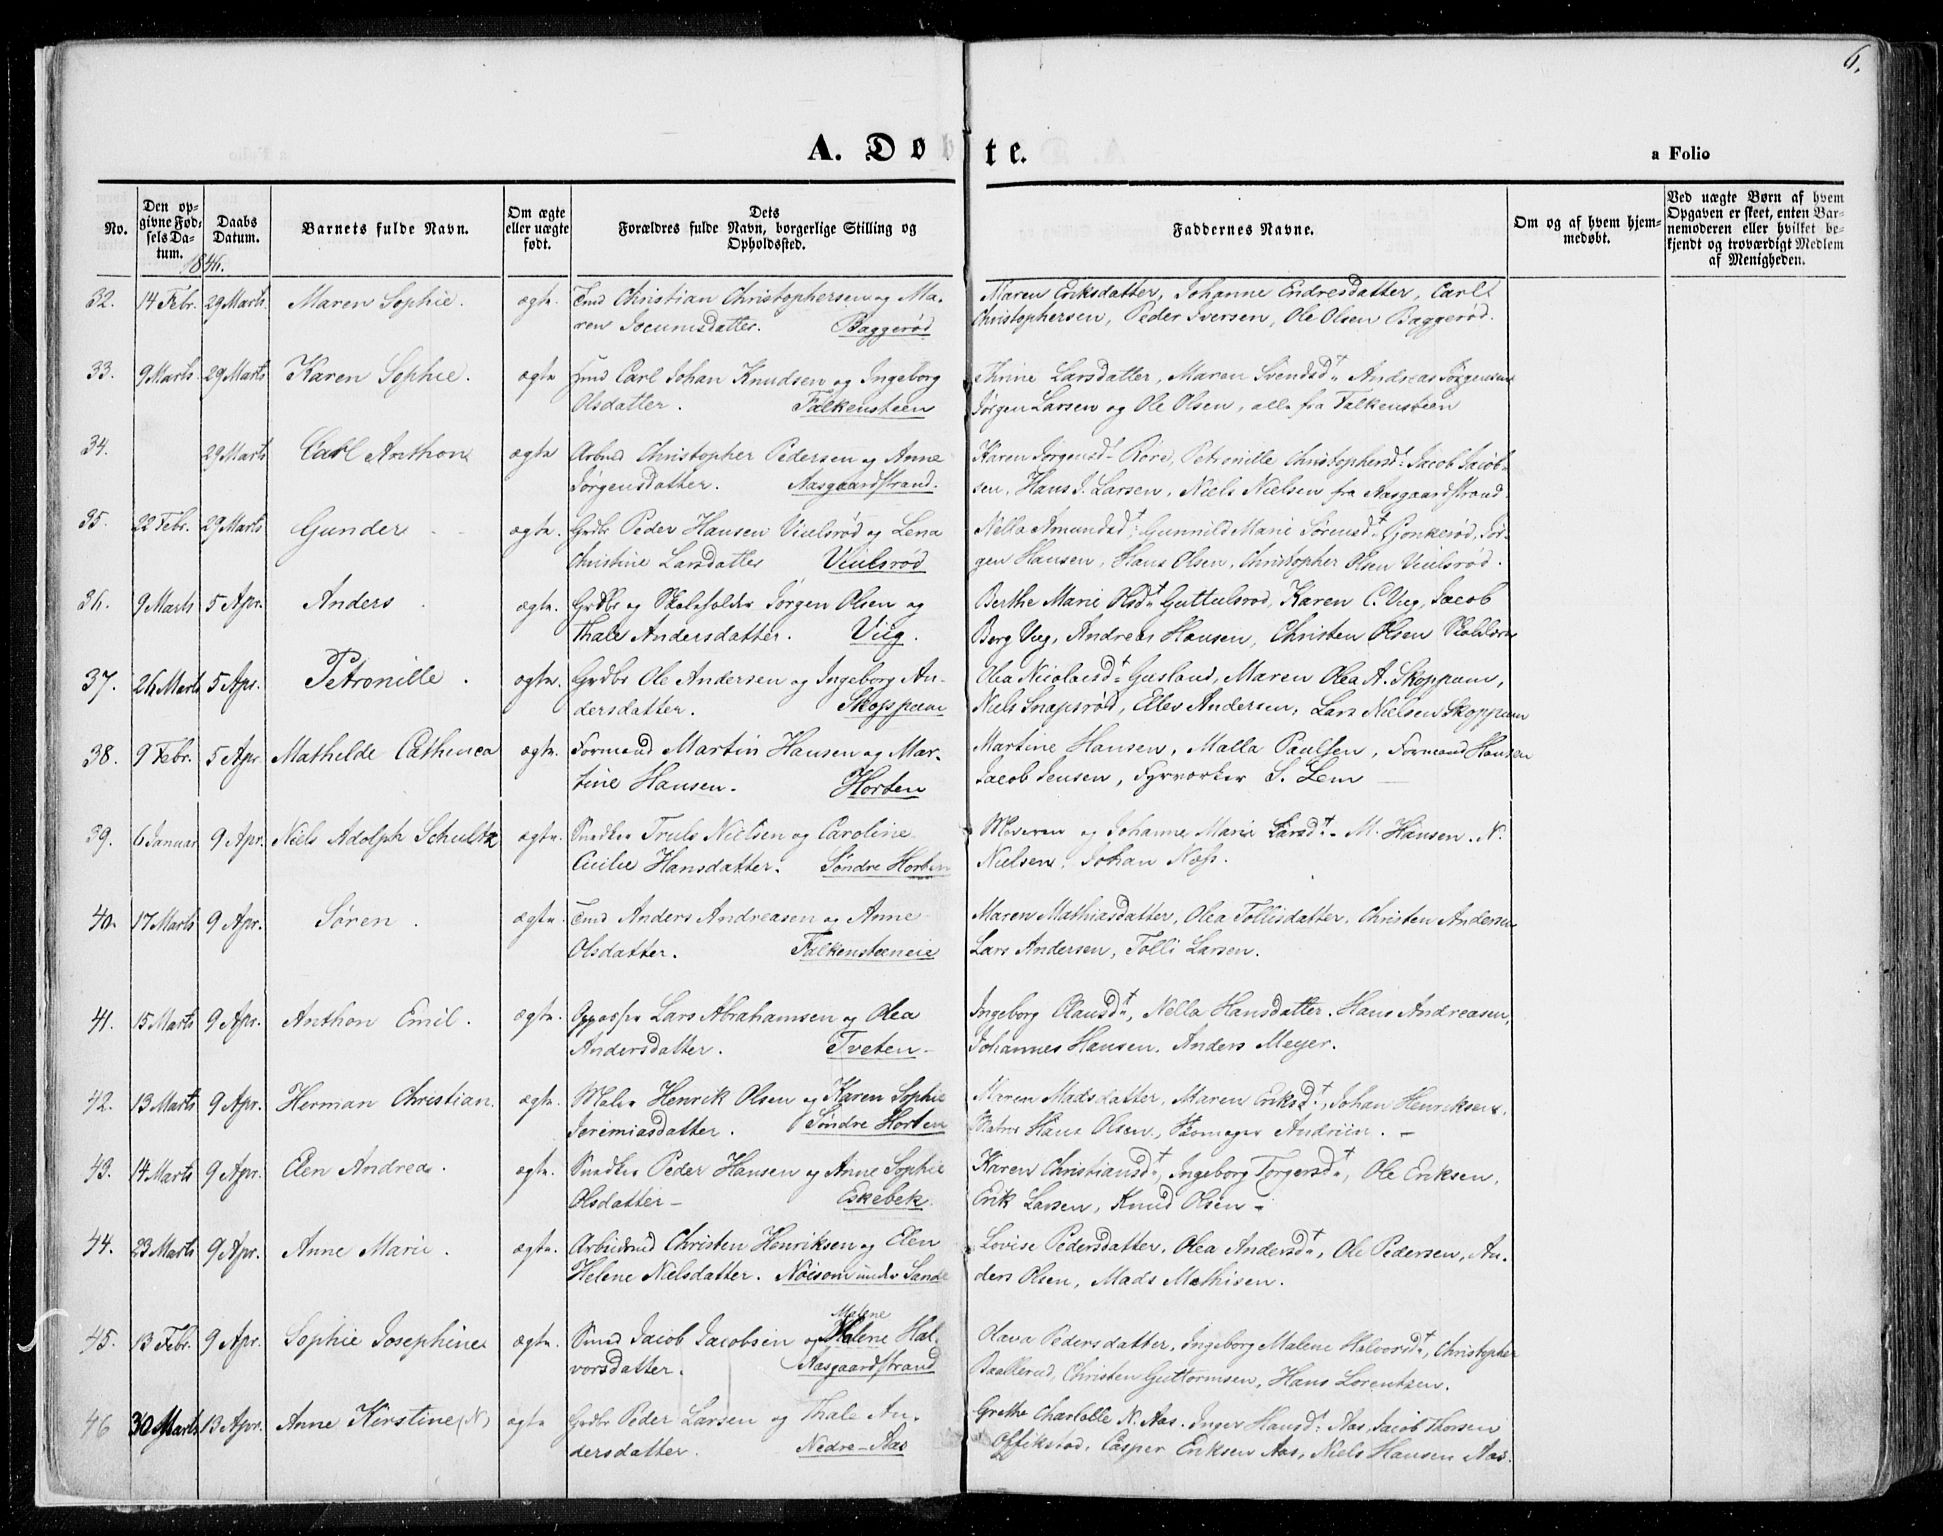 6.
A. Døbte.
a Folio
No.
Den opgivne Fødselsdatum.
Daabs Datum.
Barnets fulde Navn.
Om ægte eller uægte født.
Dets Forældres fulde Navn, borgerlige Stilling og Opholdssted.
Faddernes Navne.
Om og af hvem hjemmedøbt.
Ved uægte Børn af hvem Opgaven er skeet, enten Barnemoderen eller hvilket bekjendt og troværdigt Medlem af Menigheden.
1846.
32. 14 Febr. 29 Marts Maren Sophie. ægte. Christian Christophersen og Ma- Maren Eriksdatter, Johanne Endresdatter, Carl
ren Jocumsdatter. Baggerød Christophersen, Peder Iversen, Ole Olsen Baggerød.
33. 9 Marts 29 Marts Karen Sophie. ægte Carl Johan Knudsen og Ingeborg Thrine Larsdatter, Maren Svendsd. Andreas Jørgensen
Olsdatter. Falkensteen Jørgen Larsen og Ole Olsen, alle fra Falkensteen
34. 29 Marts Carl Anthon ægte Arbmd Christopher Pedersen og Anne Karen Jørgensd. Røre, Petronille Christophersd. Jacob Jacob-
Jørgensdatter. Aasgaardstrand. sen, Hans J. Larsen, Niels Nielsen fra Aasgaardstrand.
35. 22 Febr. 29 Marts Gunder ægte. Grdbr Peder Hansen Viulsrød og Lena Nella Amundsd. Gunnild Marie Sørensd. Gjonkerød, Jør-
Christine Larsdatter Viulsrød gen Hansen, Hans Olsen, Christopher Olsen Viulsrød.
36. 9 Marts 5 Apr. Anders. ægte. Grdbr og Skoleholder Jørgen Olsen og Berthe Marie Olsd. Guttulsrod, Karen C. Viig, Jacob
Thale Andersdatter. Viig. Borg Viig, Andreas Hansen, Christen Olsen
37. 26 Marts 5 Apr. Petronille. ægte. Grdbr Ole Andersen og Ingeborg An- Olea Nicolaisd. Gusland, Maren Olea A. Skoppum,
dersdatter. Skoppum Niels Snapsrød, Ellev Andersen, Lars Nielsen Skoppum
38. 9 Febr. 5 Apr. Mathilde Cathinca ægte. Formand Martin Hansen og Mar- Martine Hansen, Malla Paulsen, Formand Hansen
tine Hansen. Horten Jacob Jensen, Fyrvorker S. Lem
39. 6 Januar 9 Apr. Niels Adolph Schultz ægte. Snedker Truls Nielsen og Caroline Moderen og Johanne Marie Larsd. M. Hansen. N.
Cicilie Hansdatter. Søndre Horten Nielsen, Johan Næss.
40. 17 Marts 9 Apr. Søren. ægte. Anders Andreasen og Anne Maren Mathiasdatter, Olea Tollisdatter, Christen Andersen
Olsdatter. Falkensteeneie Lars Andersen, Tolli Larsen.
41. 15 Marts 9 Apr. Anthon Emil. ægte. Lars Abrahamsen og Olea Ingeborg Olausd., Nella Hansdatter, Hans Andreasen,
Andersdatter. Tveten Johannes Hansen, Anders Meyer.
42. 13 Marts 9 Apr. Herman Christian. ægte. Maler Henrik Olsen og Karen Sophie Maren Madsdatter, Maren Eriksd., Johan Henriksen.
Jeremiasdatter. Søndre Horten Hans Olsen, Andrén.
43. 14 Marts 9 Apr. Elen Andrea. ægte. Snedker Peder Hansen og Anne Sophie Karen Christiansd., Ingeborg Torgersd., Ole Eriksen,
Olsdatter Eskebek. Erik Larsen, Knud Olsen
44. 23 Marts 9 Apr. Anne Marie. ægte. Arbeidsmd Christen Henriksen og Elen Lovise Pedersdatter, Olea Andersd., Ole Pedersen, An-
Helene Nielsdatter. Noisom under Sande ders Olsen, Mads Mathisen.
45. 13 Febr. 9 Apr. Sophie Josephine ægte. Jacob Jacobsen og Malene Hal- Olava Pedersdatter, Ingeborg Malene Halvorsd., Christopher
vorsdatter. Aasgaardstrand Baallerud, Christen Guttormsen, Hans Lorentzen.
46 30 Marts 13 Apr. Anne Kirstine (N) ægte Grdbr Peder Larsen og Thale An- Grethe Charlotte N. Aas. Inger Hansd. Aas, Jacob Thorsen
dersdatter. Nedre-Aas Offikstad, Casper Eriksen Aas, Niels Hansen Aas.